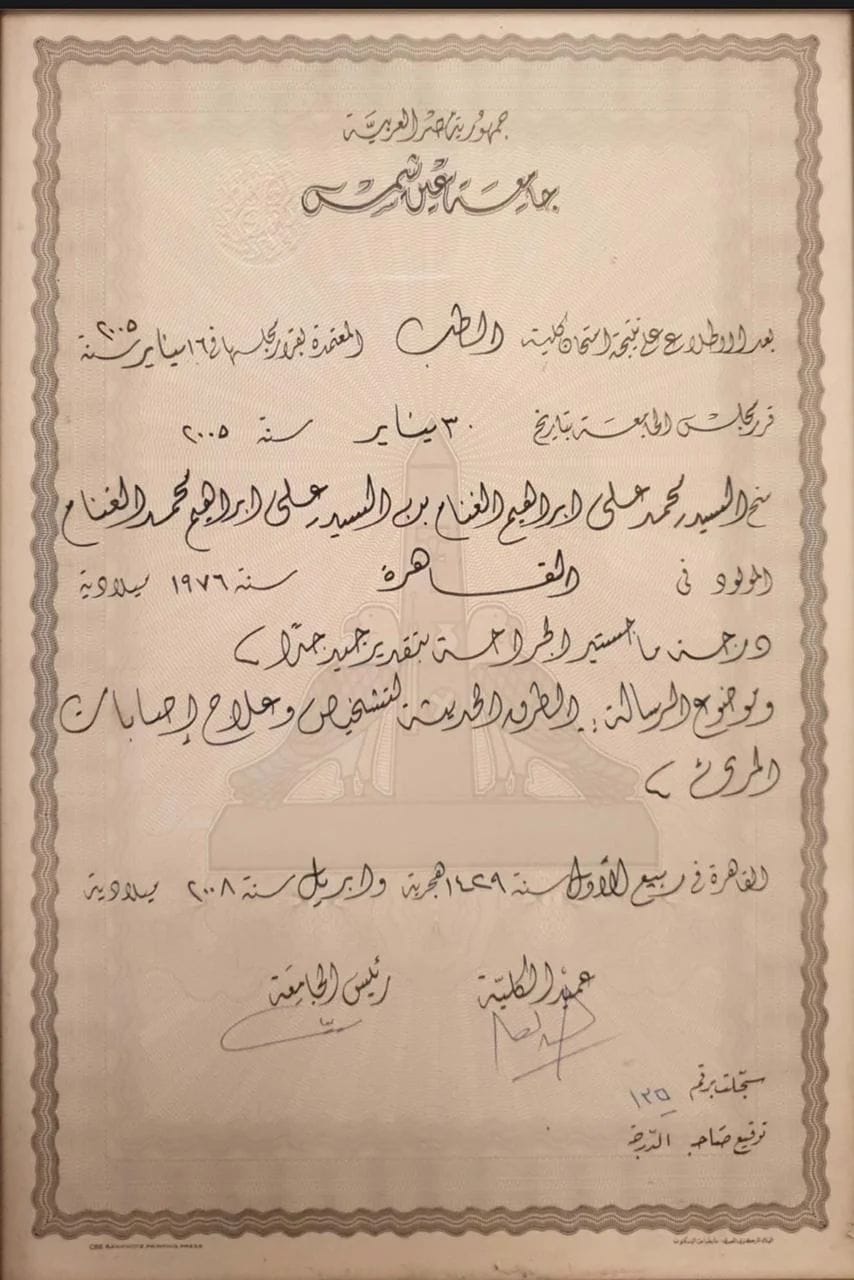 جمهورية مصر العربية
جامعة عين شمس
بعد الاطلاع على نتيجة امتحان كلية الطب المعتمدة بقرار مجلسها في ١٦ يناير سنة ٢٠٠٥
قرر مجلس الجامعة بتاريخ ٣٠ يناير سنة ٢٠٠٥
منح السيد / محمد على ابراهيم الغنام بن السيد / على ابراهيم محمد الغنام
المولود فى القاهرة سنة ١٩٧٦ ميلادية
درجة ماجستير الجراحة بتقدير جيد جدًا
وموضوع الرسالة : الطرق الحديثة لتشخيص وعلاج إصابات
المرئ
القاهرة في ربيع الأول سنة ١٤٢٩ هجرية وابريل سنة ٢٠٠٨ ميلادية
عميد الكلية رئيس الجامعة
سجلت برقم ١٢٥
توقيع صاحب الدرجة
CBE BANKNOTE PRINTING PRESS